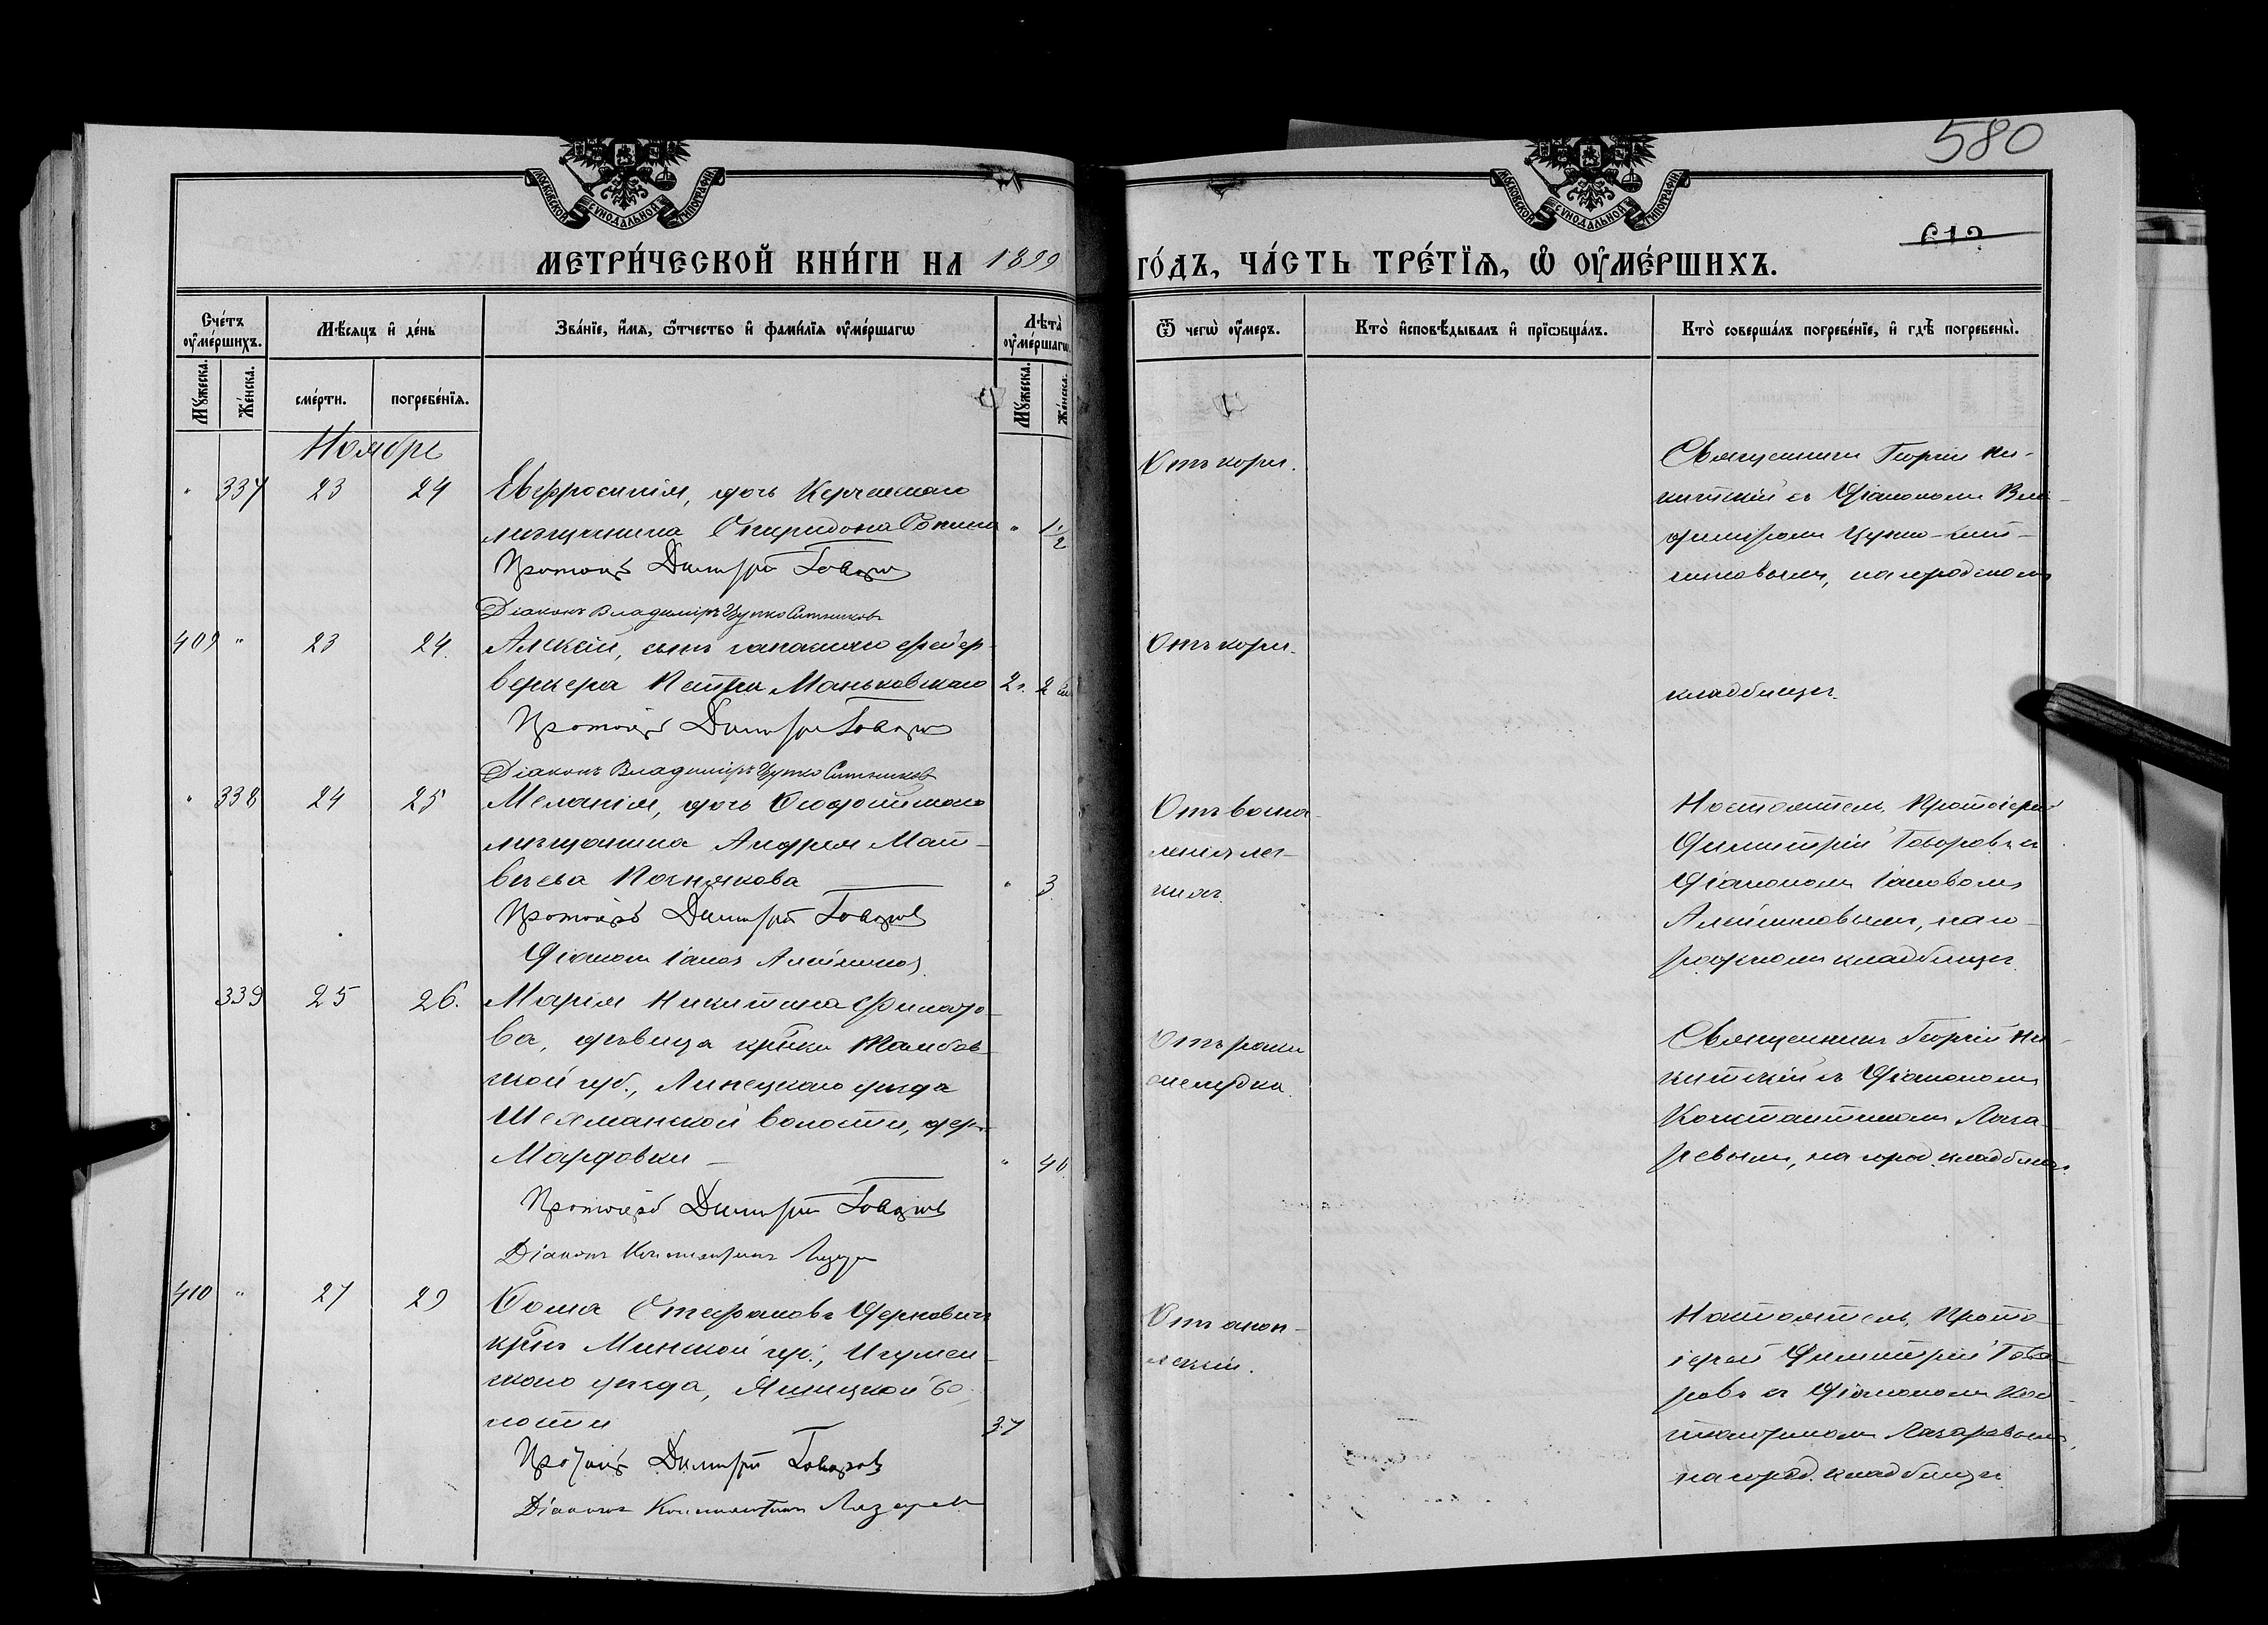 580
612
МОСКОВСКОЙ СУНОДАЛЬНОЙ ТИПОГРАФІИ
МОСКОВСКОЙ СУНОДАЛЬНОЙ ТИПОГРАФІИ
МЕТРИ́ЧЕСКОЙ КНИ́ГИ НА 1899
ГО́ДЪ, ЧА́СТЬ ТРЕ́ТІѦ, Ѡ҆ ОУ҆МЕ́РШИХЪ.
Сче́тъ оу҆ме́ршихъ.
Мѣ́сѧцъ и҆ де́нь
Зва́нїе, и҆́мѧ, ѻ҆́тчество и҆ фами́лїѧ оу҆ме́ршагѡ
Лѣта̀ оу҆ме́ршагѡ.
Ѿ чегѡ̀ оу҆́меръ.
Кто̀ и҆сповѣ́дывалъ и҆ прїѡбща́лъ.
Кто̀ соверша́лъ погребе́нїе, и҆ гдѣ̀ погребены̀.
Мꙋ́жеска.
Же́нска.
сме́рти.
погребе́нїѧ.
Мꙋ́жеска.
Же́нска.
Ноябрь
" 337 23 24 Евфросинія, дочь Керченскаго
мѣщанина Спиридона " 1 1/2
Протоіерей Димитрій Говоровъ
Діаконъ Владиміръ Цупко Ситниковъ
Отъ кори.
Священникъ Георгій Ни-
китскій съ Діакономъ Вла-
диміромъ Цупко-Сит-
никовымъ, на городскомъ
409 " 23 24. Алексій, сынъ запаснаго фейер-
веркера Петра Маньковскаго 2 г. 2
Протоіерей Димитрій Говоровъ
Діаконъ Владиміръ Цупко Ситниковъ
Отъ кори.
кладбищѣ.
" 338 24 25 Меланія, дочь Ѳеодосійскаго
мѣщанина Андрея Мат-
вѣева " 3
Протоіерей Димитрій Говоровъ
Діаконъ Іаковъ Алейниковъ
Отъ воспа-
ленія лег-
кихъ.
Настоятель, Протоіерей
Димитрій Говоровъ съ
Діакономъ Іаковомъ
Алейниковымъ, на го-
родскомъ кладбищѣ.
339 25 26. Марія Никитина Филато-
ва, дѣвица кр-нка Тамбов-
ской губ., Липецкаго уѣзда
Шехманской волости, дер.
Мардовки " 40.
Протоіерей Димитрій Говоровъ
Діаконъ Константинъ Лазаревъ
Отъ рака
желудка.
Священникъ Георгій Ни-
китскій съ Діакономъ
Константиномъ Лаза-
ревымъ, на город. кладбищѣ.
410 " 27 29 Ѳома Стефановъ
кр-нъ Минской губ., Игумен-
скаго уѣзда, во-
лости 37
Протоіерей Димитрій Говоровъ
Діаконъ Константинъ Лазаревъ
Отъ апоп-
лексіи.
Настоятель, Прото-
іерей Димитрій Гово-
ровъ съ Діакономъ Кон-
стантиномъ Лазаревымъ,
на город. кладбищѣ.